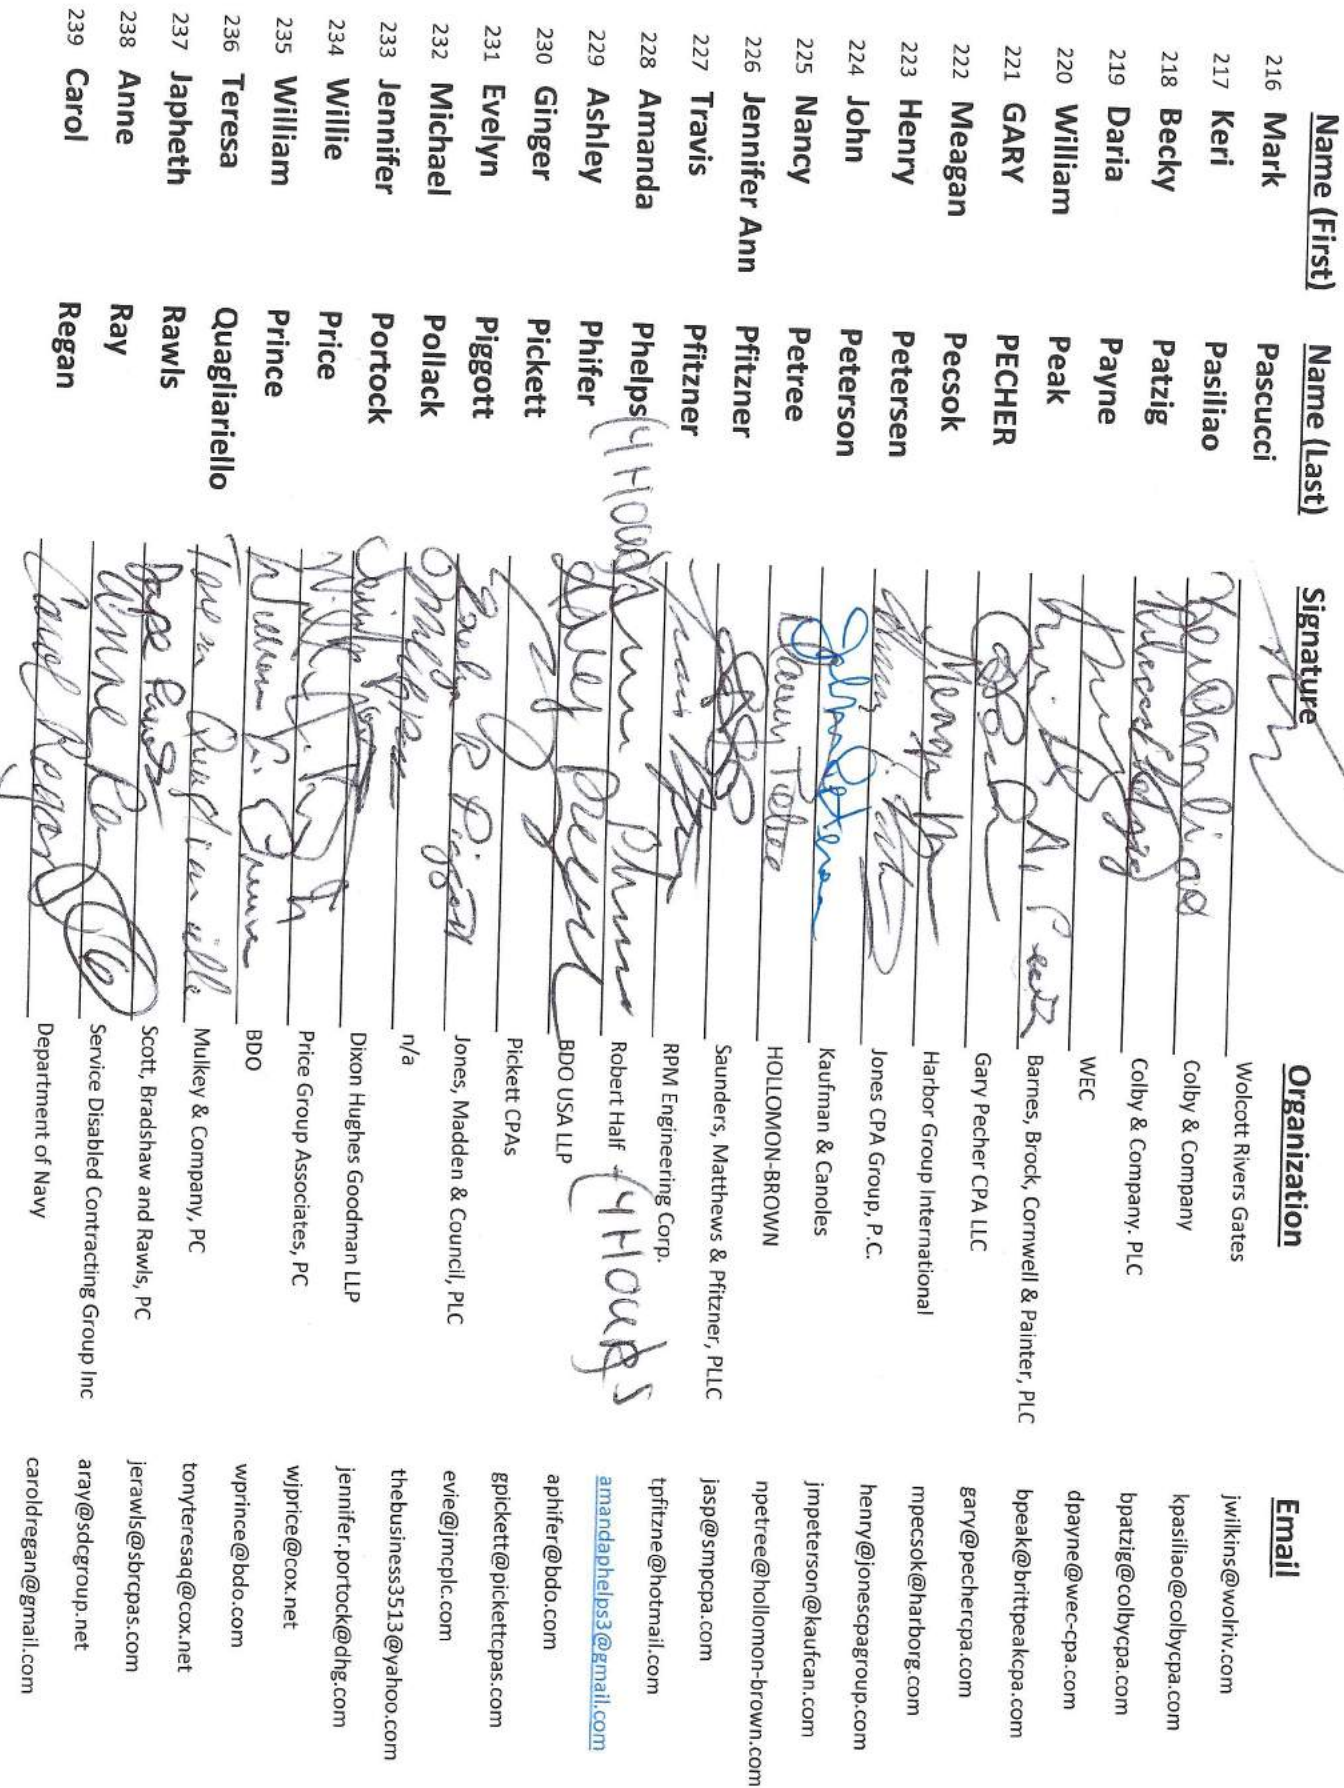 Name (First) Name (Last) Signature Organization Email
216 Mark Pascucci Wolcott Rivers Gates jwilkins@wolriv.com
217 Keri Pasiliao Keri Pasiliao Colby & Company kpasiliao@colbycpa.com
218 Becky Patzig Colby & Company. PLC bpatzig@colbycpa.com
219 Daria Payne WEC dpayne@wec-cpa.com
220 William Peak Barnes, Brock, Cornwell & Painter, PLC bpeak@brittpeakcpa.com
221 GARY PECHER Gary Pecher CPA LLC gary@pechercpa.com
222 Meagan Pecsok Harbor Group International mpecsok@harborg.com
223 Henry Petersen Jones CPA Group, P.C. henry@jonescpagroup.com
224 John Peterson John Peterson Kaufman & Canoles jmpeterson@kaufcan.com
225 Nancy Petree Nancy Petree HOLLOMON-BROWN npetree@hollomon-brown.com
226 Jennifer Ann Pfitzner Saunders, Matthews & Pfitzner, PLLC jasp@smpcpa.com
227 Travis Pfitzner RPM Engineering Corp. tpfitzne@hotmail.com
228 Amanda Phelps (4 Hours) Robert Half (4 HOURS amandaphelps3@gmail.com
229 Ashley Phifer BDO USA LLP aphifer@bdo.com
230 Ginger Pickett Pickett CPAs gpickett@pickettcpas.com
231 Evelyn Piggott Evelyn R Piggott Jones, Madden & Council, PLC evie@jmcplc.com
232 Michael Pollack n/a thebusiness3513@yahoo.com
233 Jennifer Portock Dixon Hughes Goodman LLP jennifer.portock@dhg.com
234 Willie Price Price Group Associates, PC wjprice@cox.net
235 William Prince BDO wprince@bdo.com
236 Teresa Quagliariello Teresa Quagliariello Mulkey & Company, PC tonyteresaq@cox.net
237 Japheth Rawls Scott, Bradshaw and Rawls, PC jerawls@sbrcpas.com
238 Anne Ray Anne Ray Service Disabled Contracting Group Inc aray@sdcgroup.net
239 Carol Regan Carol Regan Department of Navy caroldregan@gmail.com